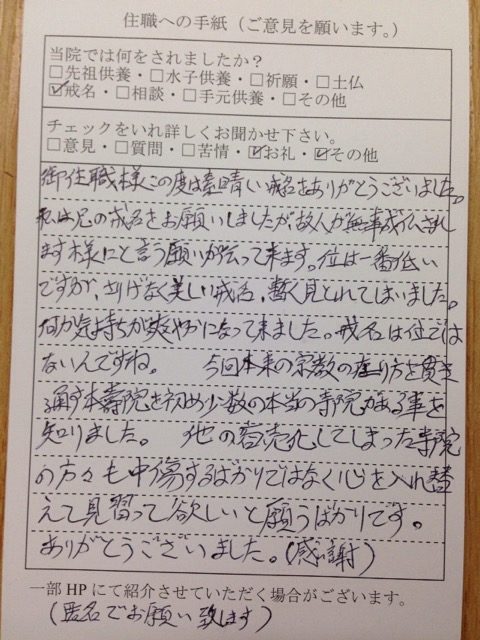 住職への手紙（ご意見を願います。）
当院では何をされましたか？
□先祖供養・□水子供養・□祈願・□土仏
☑戒名・□相談・□手元供養・□その他
チェックをいれ詳しくお聞かせ下さい。
□意見・□質問・□苦情・☑お礼・☑その他
御住職様この度は素晴しい戒名をありがとうございました。
私は兄の戒名をお願いしましたが、故人が無事成仏され
ます様にと言う願いが伝って来ます。位は一番低い
ですが、さりげなく美しい戒名、暫く見とれてしまいました。
何か気持ちが爽やかになって来ました。戒名は位では
ないんですね。　今回本来の宗教の在り方を貫き
通す本壽院を初め少数の本当の寺院がある事を
知りました。　他の商売化してしまった寺院
の方々も中傷するばかりではなく心を入れ替
えて見習って欲しいと願うばかりです。
ありがとうございました。（感謝）
一部HPにて紹介させていただく場合がございます。
（匿名でお願い致します）